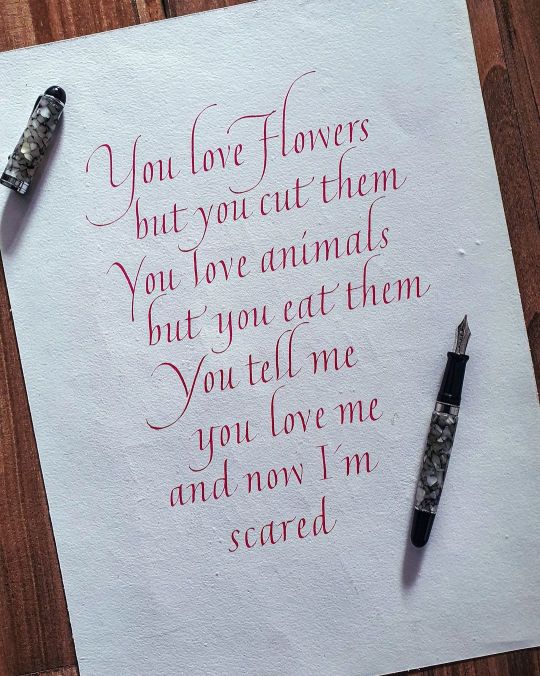 You love Flowers
but you cut them
You love animals
but you eat them
You tell me
you love me
and now I'm
scared